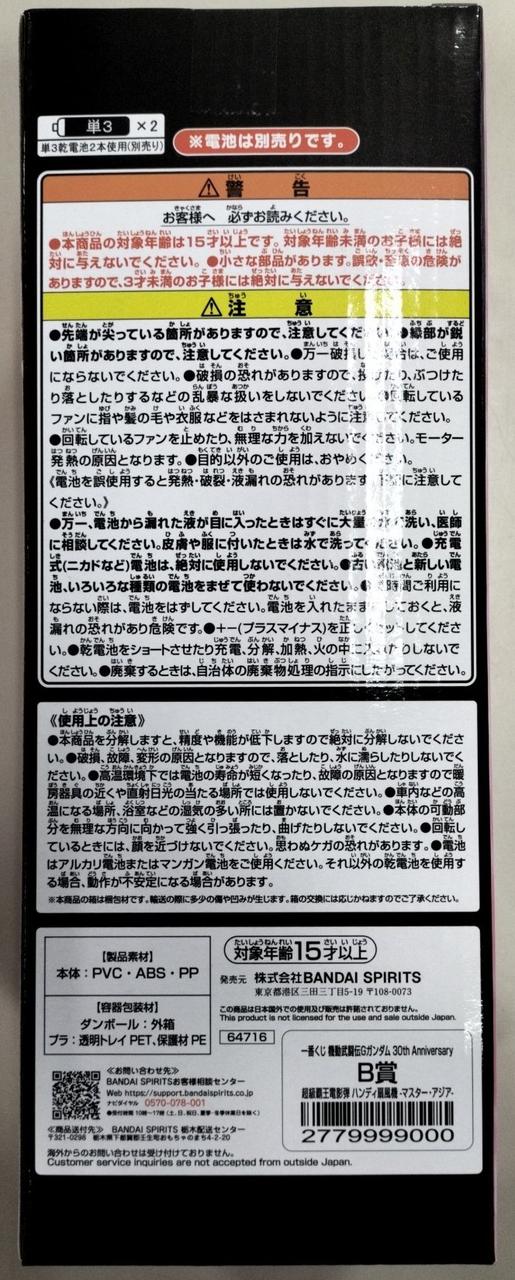 単3 ×2
単3乾電池2本使用(別売り)
※電池は別売りです。
⚠警告
お客様へ 必ずお読みください。
●本商品の対象年齢は15才以上です。対象年齢未満のお子様には絶
対に与えないでください。●小さな部品があります。誤飲・窒息の危険が
ありますので、3才未満のお子様には絶対に与えないでください。
⚠注意
●先端が尖っている箇所がありますので、注意してください。●縁部が鋭
い箇所がありますので、注意してください。●万一破損した場合は、ご使用
にならないでください。●破損の恐れがありますので、投げたり、ぶつけた
り落としたりするなどの乱暴な扱いをしないでください。●回転している
ファンに指や髪の毛や衣服などをはさまれないように注意してください。
●回転しているファンを止めたり、無理な力を加えないでください。モーター
発熱の原因となります。●目的以外のご使用は、おやめください。
《電池を誤使用すると発熱・破裂・液漏れの恐れがあります。下記に注意して
ください。》
●万一、電池から漏れた液が目に入ったときはすぐに大量の水で洗い、医師
に相談してください。皮膚や服に付いたときは水で洗ってください。●充電
式(ニカドなど)電池は、絶対に使用しないでください。●古い電池と新しい電
池、いろいろな種類の電池をまぜて使わないでください。●長時間ご利用に
ならない際は、電池をはずしてください。電池を入れたままにしておくと、液
漏れの恐れがあり危険です。●+−(プラスマイナス)を正しくセットしてくださ
い。●乾電池をショートさせたり充電、分解、加熱、火の中に入れたりしないで
ください。●廃棄するときは、自治体の廃棄物処理の指示にしたがってください。
《使用上の注意》
●本商品を分解しますと、精度や機能が低下しますので絶対に分解しないでくださ
い。●破損、故障、変形の原因となりますので、落としたり、水に濡らしたりしないでく
ださい。●高温環境下では電池の寿命が短くなったり、故障の原因となりますので暖
房器具の近くや直射日光の当たる場所では使用しないでください。●車内などの高
温になる場所、浴室などの湿気の多い所には置かないでください。●本体の可動部
分を無理な方向に向かって強く引っ張ったり、曲げたりしないでください。●回転し
ているときには、顔を近づけないでください。思わぬケガの恐れがあります。●電池
はアルカリ電池またはマンガン電池をご使用ください。それ以外の乾電池を使用す
る場合、動作が不安定になる場合があります。
※本商品の箱は梱包材です。輸送の際に多少の傷や凹みが生じます。箱の交換には応じかねますのでご了承ください。
【製品素材】
本体:PVC・ABS・PP
【容器包装材】
ダンボール:外箱
プラ:透明トレイ PET、保護材 PE
対象年齢15才以上
発売元 株式会社BANDAI SPIRITS
東京都港区三田三丁目5-19 〒108-0073
この商品は日本国外での使用及び販売は許諾されておりません。
This product is not licensed for the use and sale outside Japan.
64716
≪お問い合わせ先≫
BANDAI SPIRITSお客様相談センター
Web https://support.bandaispirits.co.jp
ナビダイヤル 0570-078-001
●受付時間 10時〜17時(土、日、祝日、夏季・冬季休業日を除く)
≪商品送付先≫ BANDAI SPIRITS 栃木配送センター
〒321-0298 栃木県下都賀郡壬生町おもちゃのまち4-2-20
海外からのお問い合わせは受け付けておりません。
Customer service inquiries are not accepted from outside Japan.
一番くじ 機動武闘伝Gガンダム 30th Anniversary
B賞
超級覇王電影弾 ハンディ扇風機 -マスター・アジア-
2779999000